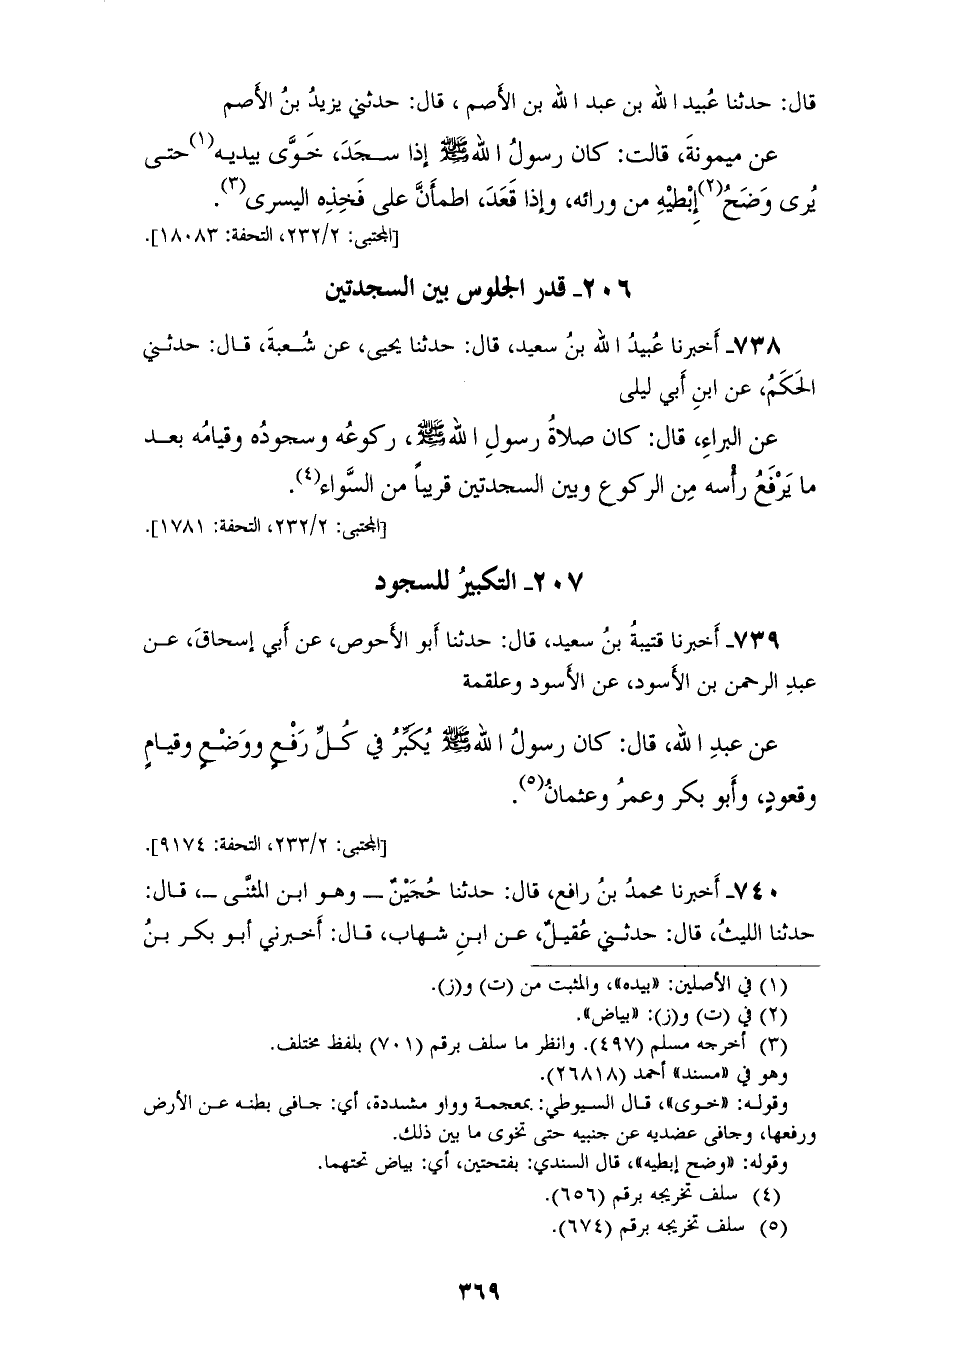 قال: حدثنا عُبيد الله بن عبد الله بن الأَصم ، قال: حدثني يزيدُ بنُ الأَصم
عن ميمونةَ، قالت: كان رسولُ اللهﷺ إذا سـجَدَ، خَـوَّى بيديـه(١)حتـى
يُرى وَضَحُ(٢)إِبْطَيْهِ من ورائه، وإذا قَعَدَ، اطمأَنَّ على فَخِذِه اليسرى(٣).
[المجتبى: ٢٣٢/٢، التحفة: ١٨٠٨٣].
٢٠٦ـ قدر الجلوس بين السجدتين
٧٣٨ـ أَخبرنا عُبيدُ الله بنُ سعيد، قال: حدثنا يحيى، عن شُـعبةَ، قـال: حدثـني
الحَكَمُ، عن ابنِ أَبي ليلى
عن البراءِ، قال: كان صلاةُ رسولِ اللهﷺ، ركوعُه وسجودُه وقيامُه بعـد
ما يَرْفَعُ رأْسه مِن الركوع وبين السجدتين قريباً من السَّواء(٤).
[المجتبى: ٢٣٢/٢، التحفة: ١٧٨١].
٢٠٧ـ التكبيرُ للسجود
٧٣٩ـ أَخبرنا قتيبةُ بنُ سعيد، قال: حدثنا أَبو الأَحوص، عن أَبي إسحاقَ، عـن
عبدِ الرحمن بن الأَسود، عن الأَسود وعلقمة
عن عبدِ الله، قال: كان رسولُ اللهﷺ يُكبِّرُ في كُـلِّ رَفْـعٍ ووَضْـعٍ وقيـامٍ
وقعودٍ، وأَبو بكر وعمرُ وعثمانُ(٥).
[المجتبى: ٢٣٣/٢، التحفة: ٩١٧٤].
٧٤٠ـ أَخبرنا محمدُ بنُ رافع، قال: حدثنا حُجَيْنٌ ـ وهـو ابـن المثنَّـى ـ، قـال:
حدثنا الليثُ، قال: حدثـني عُقيلٌ، عـن ابـنِ شـهاب، قـال: أَخـبرني أبـو بكـر بـنُ
(١) في الأصلين: «بيده»، والمثبت من (ت) و(ز).
(٢) في (ت) و(ز): «بياض».
(٣) أخرجه مسلم (٤٩٧). وانظر ما سلف برقم (٧٠١) بلفظ مختلف.
وهو في «مسند» أحمد (٢٦٨١٨).
وقولـه: «خـوى»، قـال السيوطي: بمعجمـة وواو مشـددة، أي: جـافى بطنـه عـن الأرض
ورفعها، وجافى عضديه عن جنبيه حتى تخوى ما بين ذلك.
وقوله: «وضح إبطيه»، قال السندي: بفتحتين، أي: بياض تحتهما.
(٤) سلف تخريجه برقم (٦٥٦).
(٥) سلف تخريجه برقم (٦٧٤).
٣٦٩